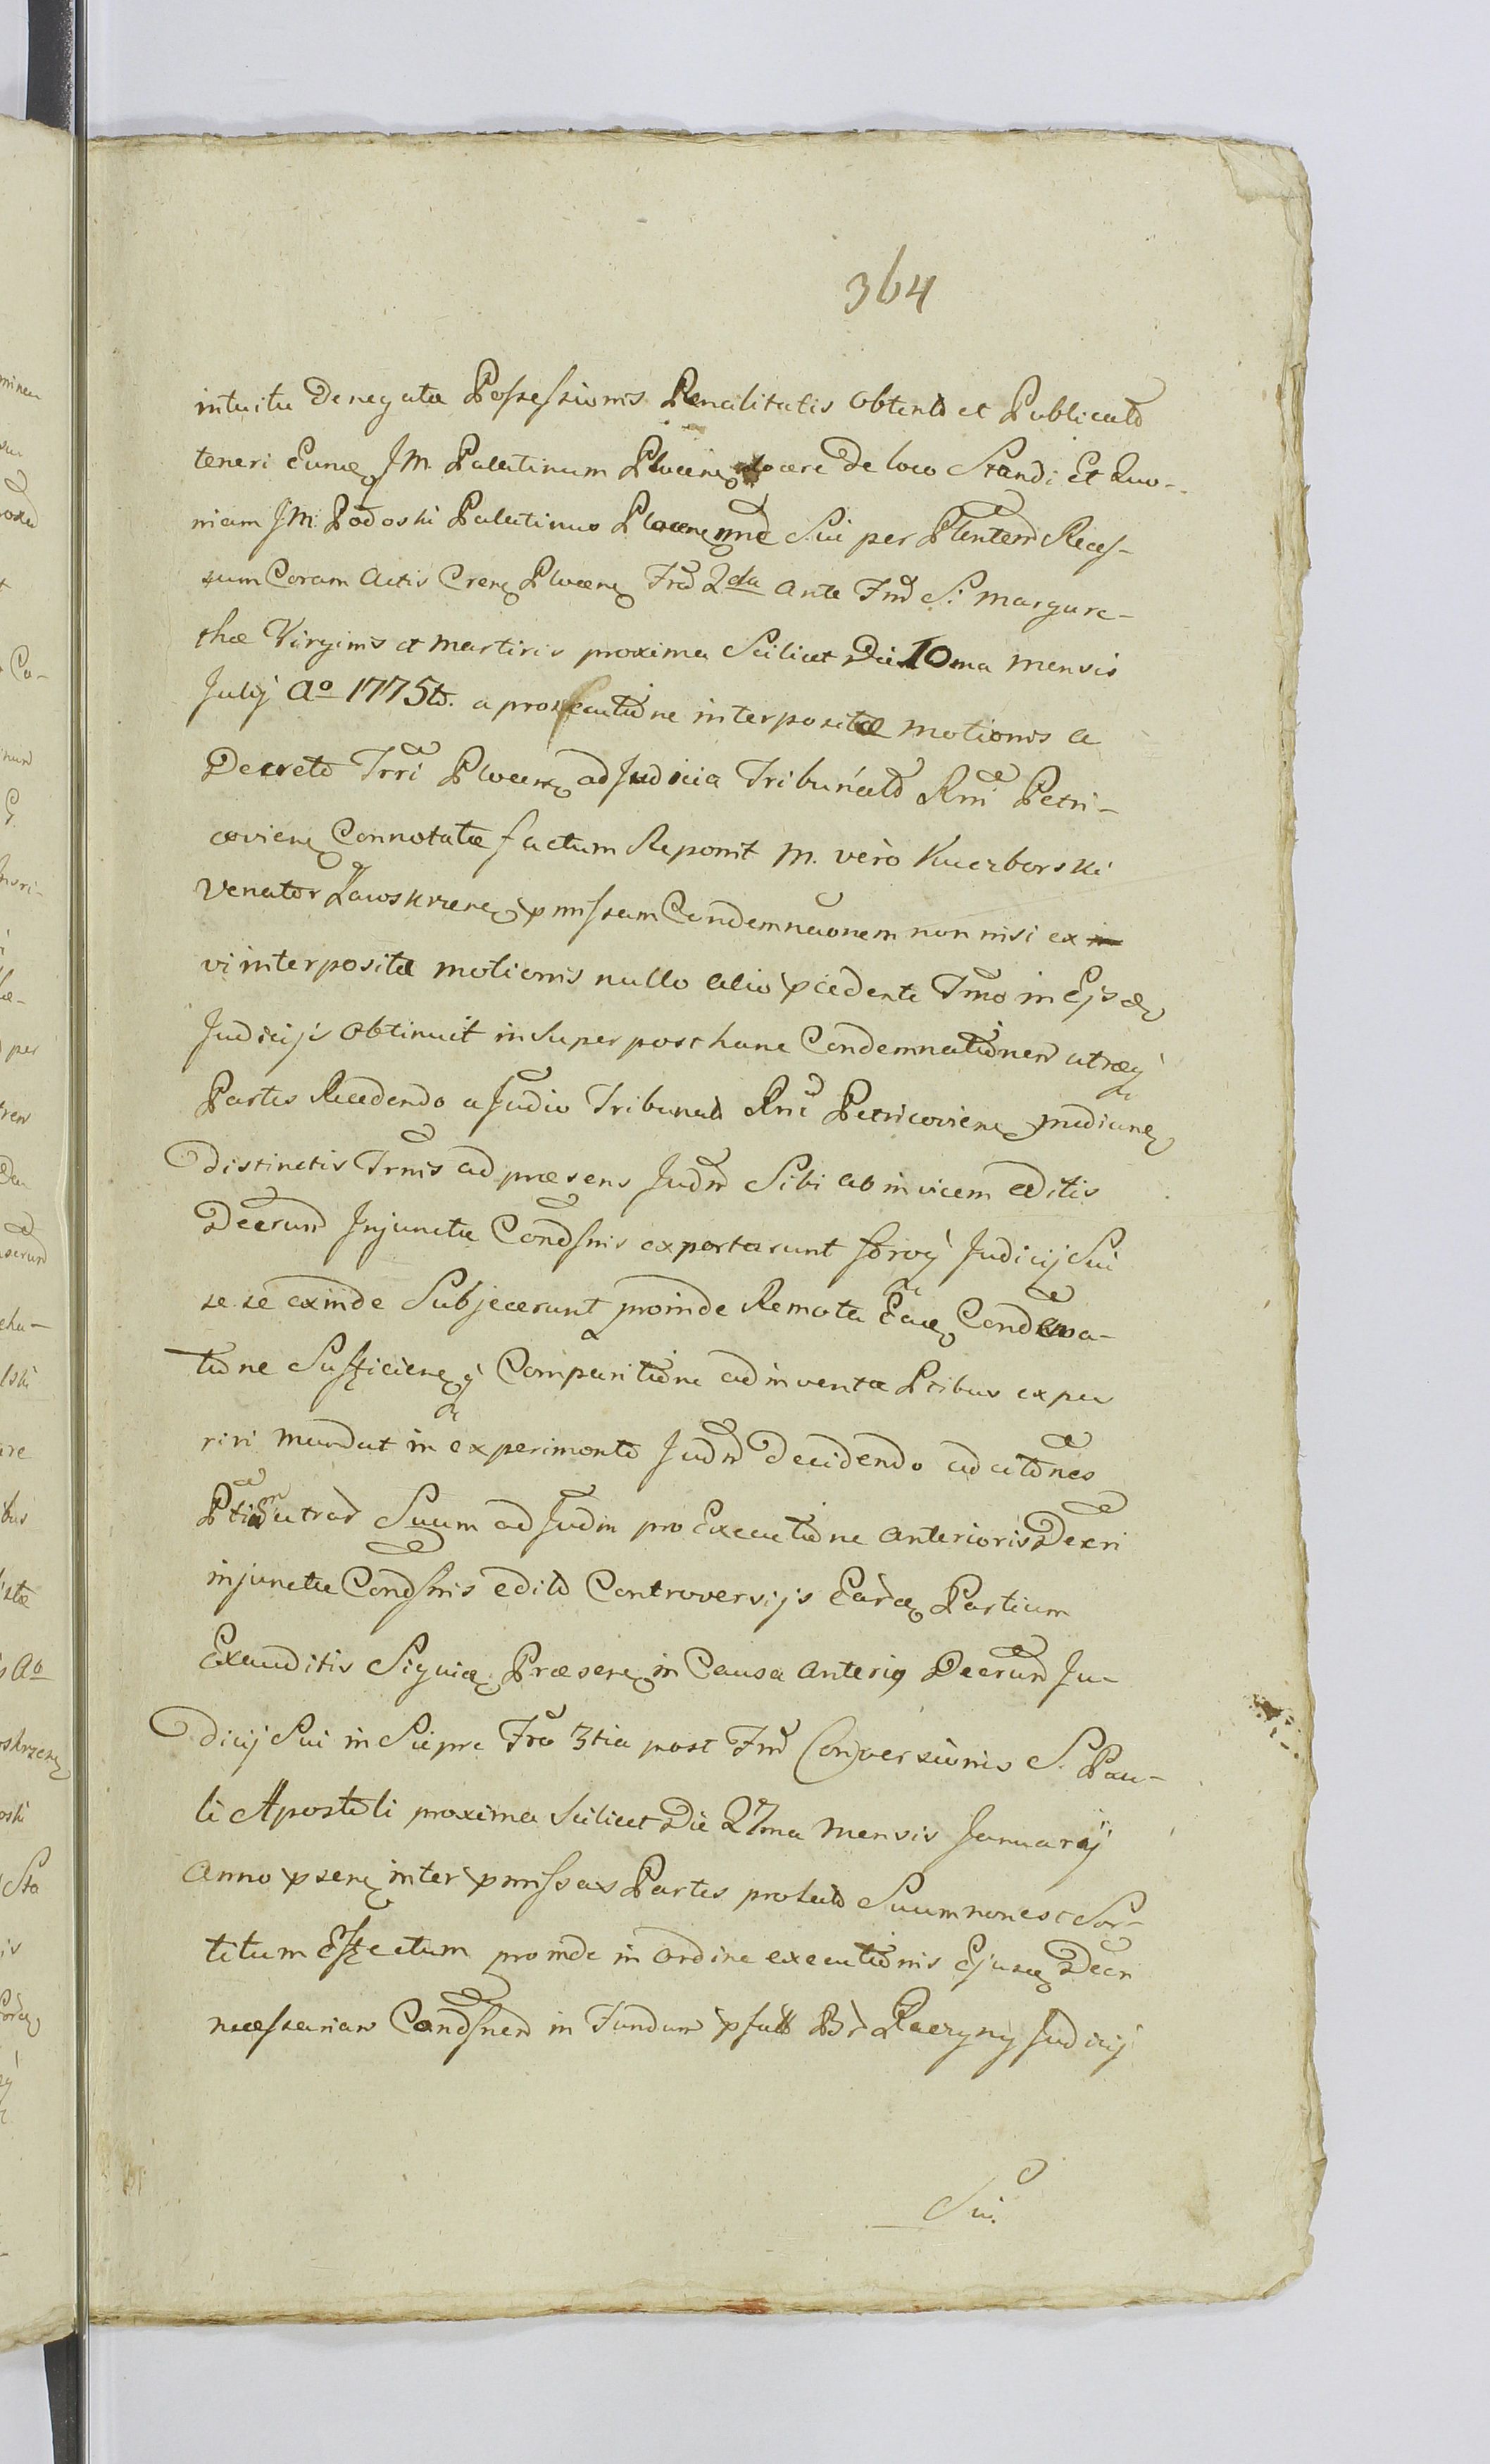 364
intuitu Denegatæ Possessionis Penalitatis obtento et Publicato
teneri eunq JM. Palatinum Plocenq docere De loco Standi Et Quo-
niam JM. Podoski Palatinus Plocenq nne Sui per Plentem Reces-
sum Coram Actis Crenq Plocenq Fra 2da ante Fm S. Margare-
thæ Virginis et Martiris proxima Scilicet Die 10ma Mensis
Julij Ao 1775to. a prosecutione interpositæ Motionis a
Decreto Trri Plocenq ad Judicia Tribunalo Rni Petri-
covienq Connotatæ factum Reponit M. vero Kuczborski
Venator Zawskrzenq pmissam Condemnaonem non nisi ex
vi interpositæ Motionis nullo alio pcedente Tmo in Ejsdq
Judicijs obtinuit insuper post hanc Condemnationem utræq
Partes Recedendo a Judio Tribunalo Rni Petricovienq medianq
Distinctis Trmis ad præsens Judm Sibi ab invicem editis
Decrum Injunctæ Condsnis exportarunt foroq Judicij Sui
se se exinde Subjecerunt proinde Remota Eaq Condemna-
tione Sufficienq q Comparitione adinventa Ptibus expe
riri mandat in experimento Judm Decidendo ad citones
Ptium utrar Suum ad Judm pro Executione anterioris Decri
injunctæ Condsnis edito Controversijs Earq Partium
Exauditis Signiq Præsenq in Causa anteriq Decrum Ju-
dicij Sui in Sierpc Fra 3tia post Fm Conversionis S. Pau-
li Apostoli proxima Scilicet Die 27ma Mensis Januarij
Anno psenq inter pmissas Partes prolato Suum non est Sor-
titum Effectum proinde in ordine executionis Ejusq Decri
necessariam Condsnem in Fundum psull Br Raczyny Judicij
Sui.